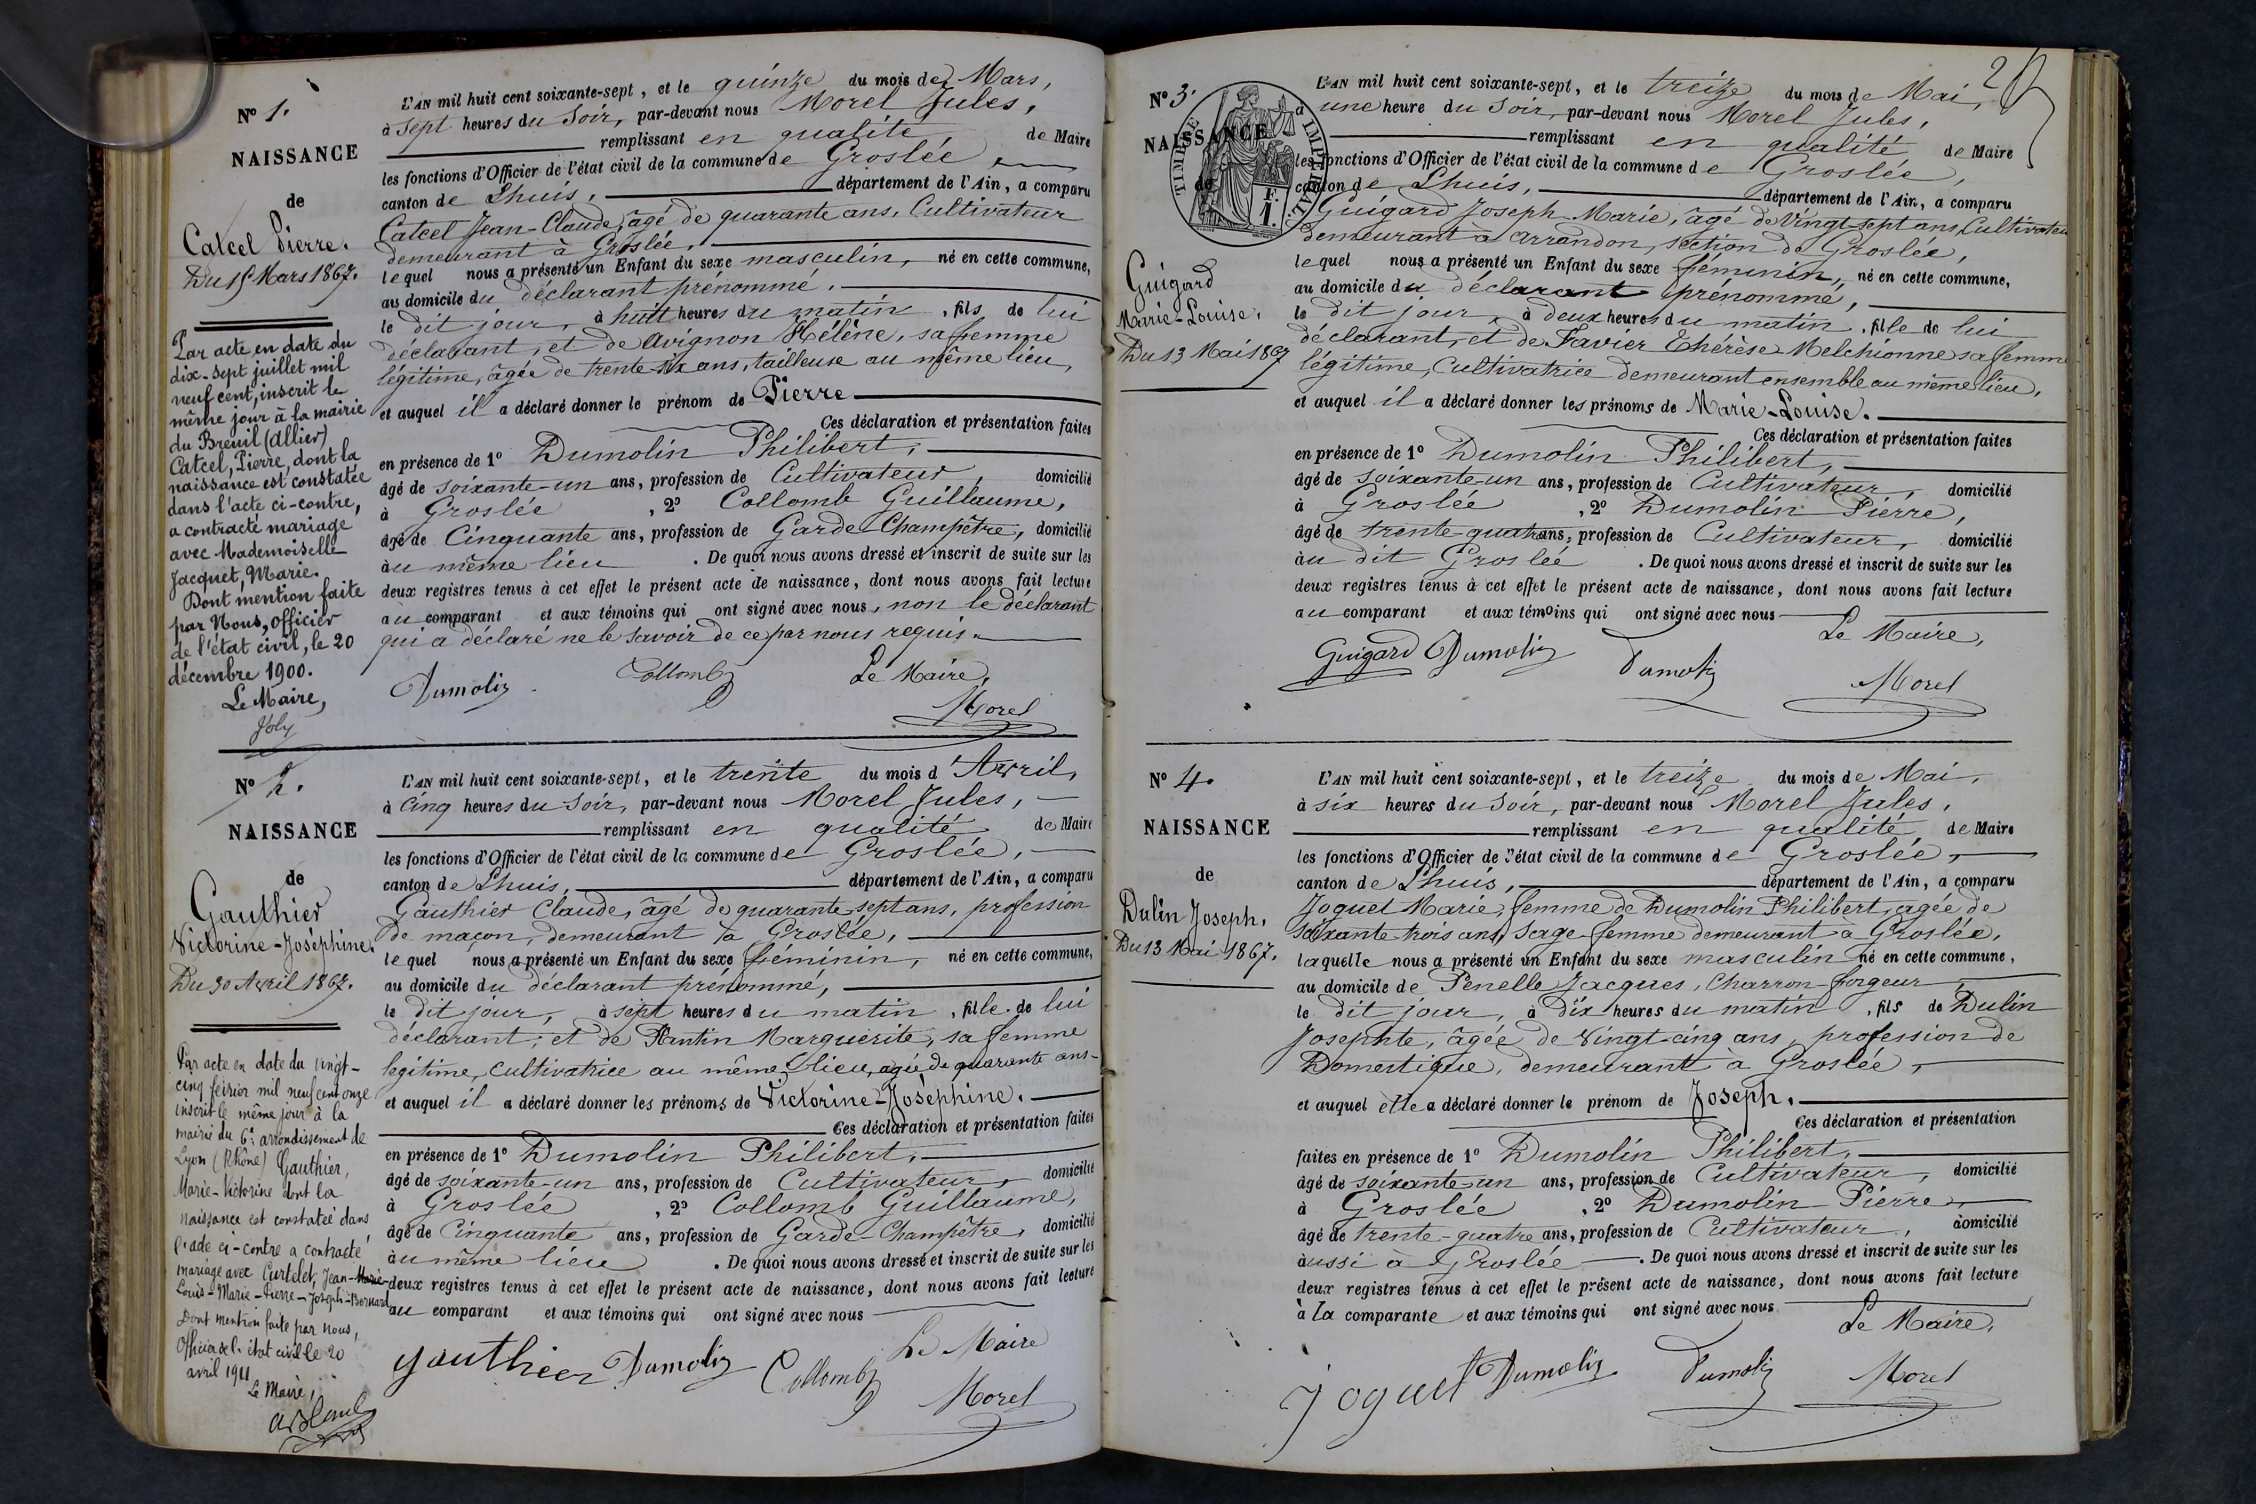 N° 1.
NAISSANCE
de
Catcel Pierre.
Du 15 Mars 1867.
Par acte en date du
dix-sept juillet mil
neuf cent, inscrit le
même jour à la mairie
du Breuil (Allier)
Catcel, Pierre, dont la
naissance est constatée
dans l'acte ci-contre,
a contracté mariage
avec Mademoiselle
Jacquet, Marie.
Dont mention faite
par Nous, officier
de l'état civil, le 20
décembre 1900.
Le Maire,
Joly
L'AN mil huit cent soixante-sept, et le quinze du mois de Mars,
à sept heures du Soir, par-devant nous Morel Jules,
remplissant en qualité de Maire
les fonctions d'Officier de l'état civil de la commune de Groslée,
canton de Lhuis, département de l'Ain, a comparu
Catcel Jean-Claude, âgé de quarante ans, Cultivateur
demeurant à Groslée,
lequel nous a présenté un Enfant du sexe masculin, né en cette commune,
au domicile du déclarant prénommé,
le dit jour, à huit heures du matin, fils de lui
déclarant, et de Avignon Hélène, sa femme
légitime, âgée de trente six ans, tailleuse au même lieu,
et auquel il a déclaré donner le prénom de Pierre
Ces déclaration et présentation faites
en présence de 1° Dumolin Philibert,
âgé de soixante-un ans, profession de Cultivateur, domicilié
à Groslée, 2° Collomb Guillaume,
âgé de Cinquante ans, profession de Garde-Champêtre, domicilié
au même lieu. De quoi nous avons dressé et inscrit de suite sur les
deux registres tenus à cet effet le présent acte de naissance, dont nous avons fait lecture
au comparant et aux témoins qui ont signé avec nous, non le déclarant
qui a déclaré ne le savoir de ce par nous requis.
Dumolin Collomb Le Maire,
Morel
N° 2.
NAISSANCE
de
Gauthier
Victorine-Joséphine.
Du 30 Avril 1867.
Par acte en date du vingt-
cinq février mil neuf cent onze
inscrit le même jour à la
mairie du 6e arrondissement de
Lyon (Rhône) Gauthier,
Marie-Victorine dont la
naissance est constatée dans
l'acte ci-contre a contracté
mariage avec Curtelet, Jean-Marie-
Louis-Marie-Pierre-Joseph-Bernard
Dont mention faite par nous,
Officier de l'état civil le 20
avril 1911
Le Maire,
L'AN mil huit cent soixante-sept, et le trente du mois d'Avril,
à Cinq heures du Soir, par-devant nous Morel Jules,
remplissant en qualité de Maire
les fonctions d'Officier de l'état civil de la commune de Groslée,
canton de Lhuis, département de l'Ain, a comparu
Gauthier Claude, âgé de quarante-sept ans, profession
de maçon, demeurant à Groslée,
lequel nous a présenté un Enfant du sexe féminin, né en cette commune,
au domicile du déclarant prénommé,
le dit jour, à sept heures du matin, fille de lui
déclarant, et de Plantin Marguerite, sa femme
légitime, cultivatrice au même lieu, agée de quarante ans-
et auquel il a déclaré donner les prénoms de Victorine-Joséphine.
Ces déclaration et présentation faites
en présence de 1° Dumolin Philibert,
âgé de soixante-un ans, profession de Cultivateur, domicilié
à Groslée, 2° Collomb Guillaume,
âgé de Cinquante ans, profession de Garde-Champêtre, domicilié
au même lieu. De quoi nous avons dressé et inscrit de suite sur les
deux registres tenus à cet effet le présent acte de naissance, dont nous avons fait lecture
au comparant et aux témoins qui ont signé avec nous
Le Maire
gauthier Dumolin Collomb Morel
N° 3.
NAISSANCE
de
TIMBRE IMPERIAL
F.
1.
Guigard
Marie-Louise.
Du 13 Mai 1867
L'AN mil huit cent soixante-sept, et le treize du mois de Mai,
à une heure du Soir, par-devant nous Morel Jules,
remplissant en qualité de Maire
les fonctions d'Officier de l'état civil de la commune de Groslée,
canton de Lhuis, département de l'Ain, a comparu
Guigard Joseph Marie, âgé de Vingt-sept ans, Cultivateur
demeurant à Arrandon, section de Groslée,
lequel nous a présenté un Enfant du sexe féminin, né en cette commune,
au domicile du déclarant prénommé,
le dit jour, à deux heures du matin, fille de lui
déclarant, et de Favier Thérèse Melchionne sa femme
légitime, Cultivatrice demeurant ensemble au même lieu,
et auquel il a déclaré donner les prénoms de Marie-Louise.
Ces déclaration et présentation faites
en présence de 1° Dumolin Philibert,
âgé de soixante-un ans, profession de Cultivateur, domicilié
à Groslée, 2° Dumolin Pierre,
âgé de trente-quatre ans, profession de Cultivateur, domicilié
au dit Groslée. De quoi nous avons dressé et inscrit de suite sur les
deux registres tenus à cet effet le présent acte de naissance, dont nous avons fait lecture
au comparant et aux témoins qui ont signé avec nous
Le Maire,
Guigard Dumolin Dumolin Morel
N° 4.
NAISSANCE
de
Dulin Joseph.
Du 13 Mai 1867.
L'AN mil huit cent soixante-sept, et le treize du mois de Mai,
à six heures du Soir, par-devant nous Morel Jules,
remplissant en qualité de Maire
les fonctions d'Officier de l'état civil de la commune de Groslée,
canton de Lhuis, département de l'Ain, a comparu
Joguet Marie, femme de Dumolin Philibert, agée de
soixante-trois ans, Sage-femme demeurant à Groslée,
laquelle nous a présenté un Enfant du sexe masculin né en cette commune,
au domicile de Penelle Jacques, Charron-forgeur,
le dit jour, à dix heures du matin, fils de Dulin
Josephte, âgée de Vingt-cinq ans, profession de
Domestique, demeurant à Groslée,
et auquel elle a déclaré donner le prénom de Joseph.
Ces déclaration et présentation
faites en présence de 1° Dumolin Philibert,
âgé de soixante-un ans, profession de Cultivateur, domicilié
à Groslée, 2° Dumolin Pierre,
âgé de trente-quatre ans, profession de Cultivateur, domicilié
aussi à Groslée. De quoi nous avons dressé et inscrit de suite sur les
deux registres tenus à cet effet le présent acte de naissance, dont nous avons fait lecture
à la comparante et aux témoins qui ont signé avec nous
Le Maire,
Joguet Dumolin Dumolin Morel